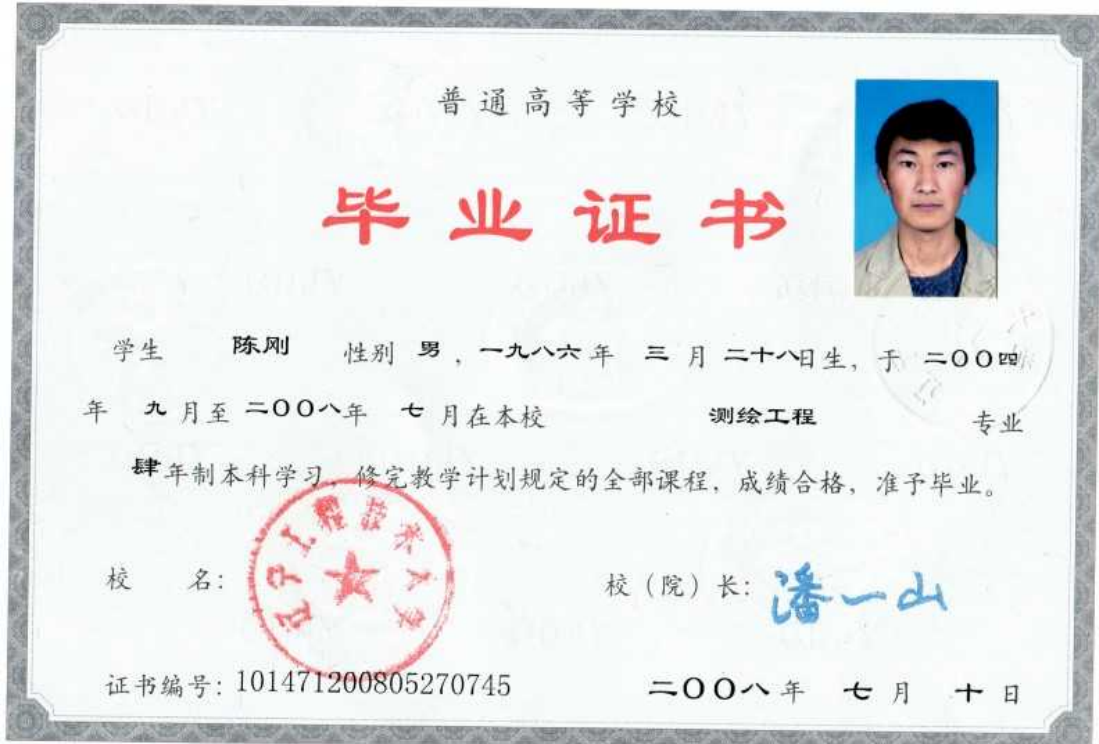 普通高等学校
毕业证书
学生 陈刚 性别 男，一九八六年 三月二十八日生，于 二〇〇四
年 九月至二〇〇八年 七月在本校 测绘工程 专业
肆年制本科学习，修完教学计划规定的全部课程，成绩合格，准予毕业。
辽宁工程技术大学
校 名： 校（院）长：潘一山
证书编号：101471200805270745 二〇〇八年 七月 十日